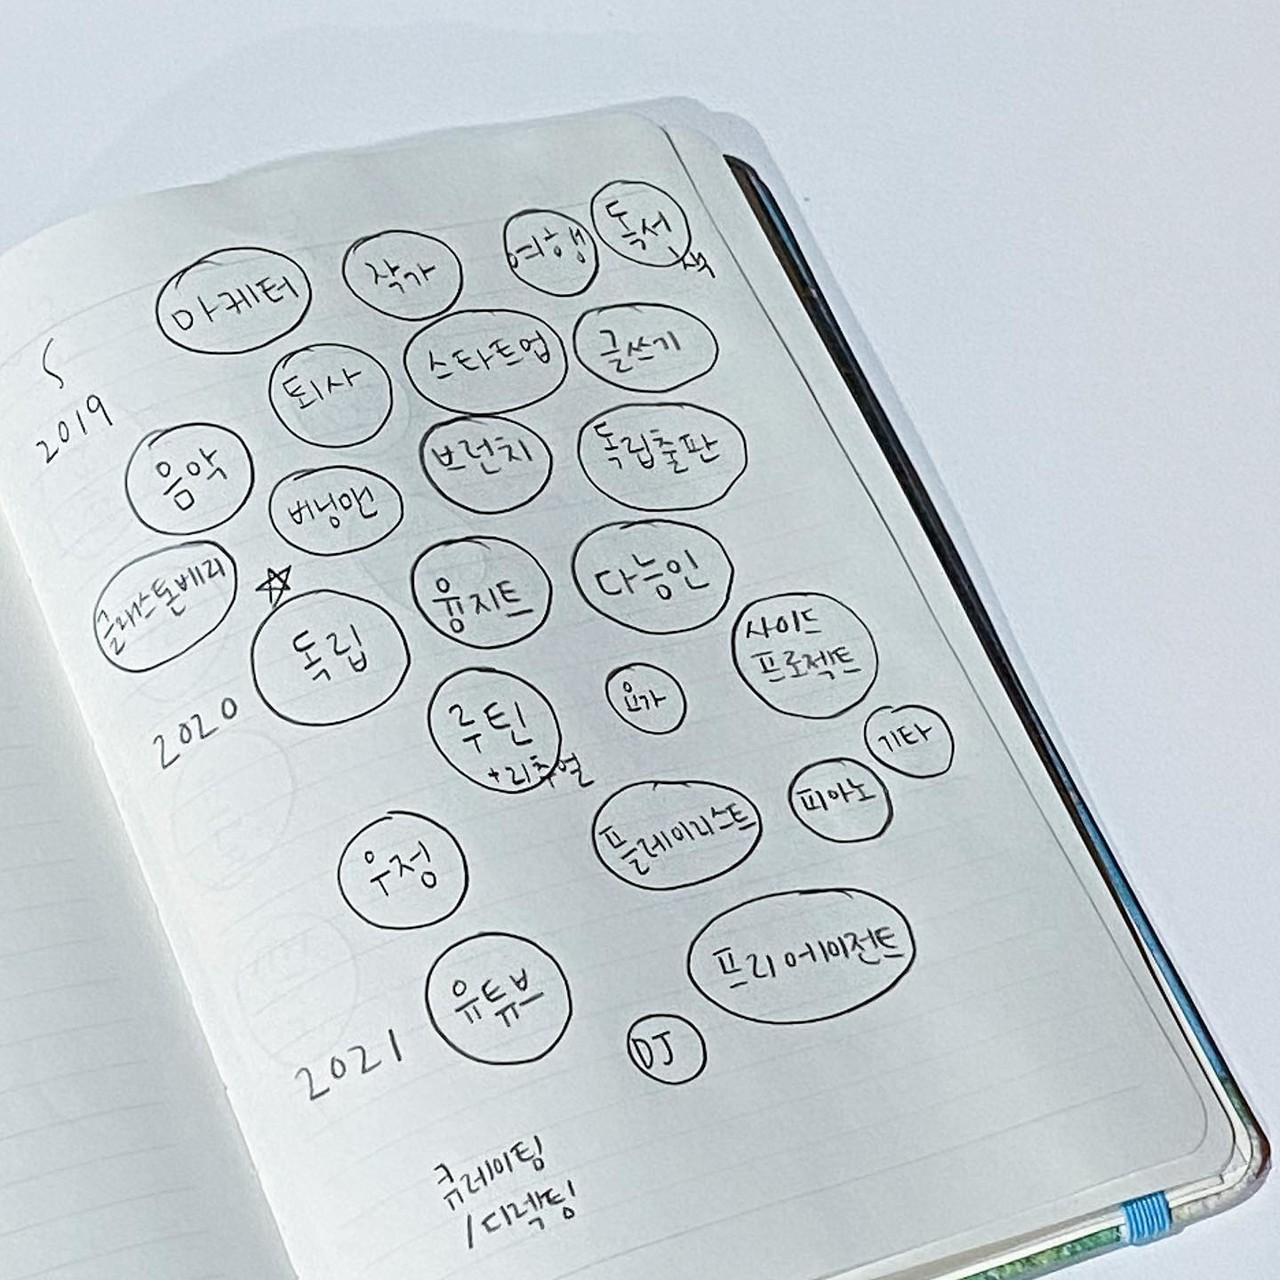 마케터
작가
여행
독서
책
S
2019
퇴사
스타트업
글쓰기
음악
버닝맨
브런치
독립출판
글래스톤베리
☆
독립
융지트
다능인
사이드
프로젝트
2020
루틴
+리추얼
요가
기타
피아노
플레이리스트
우정
프리에이전트
유튜브
DJ
2021
큐레이팅
/디렉팅